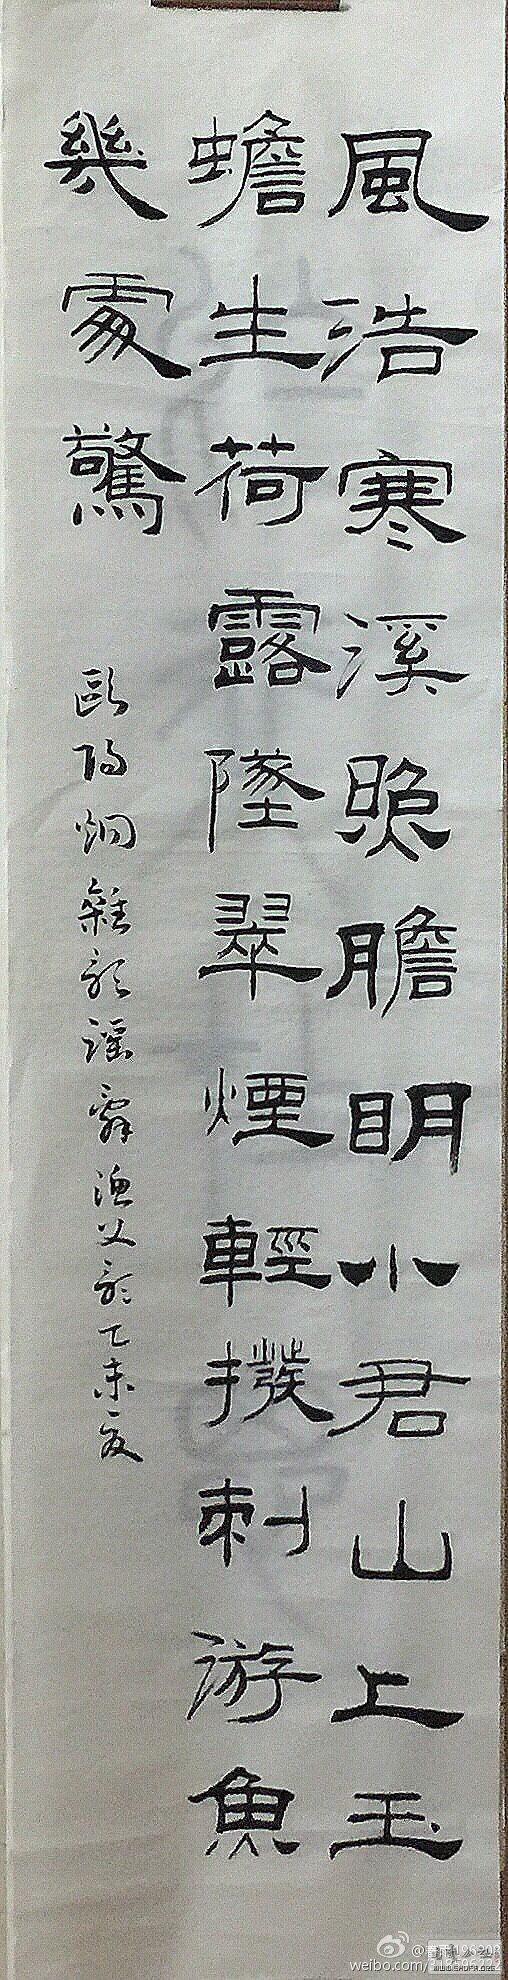 風浩寒溪照膽明小君山上玉
蟾生荷露墜翠煙輕撥刺游魚
幾處驚
歐陽炯雜歌謠辭漁父歌乙未夏
weibo.com/